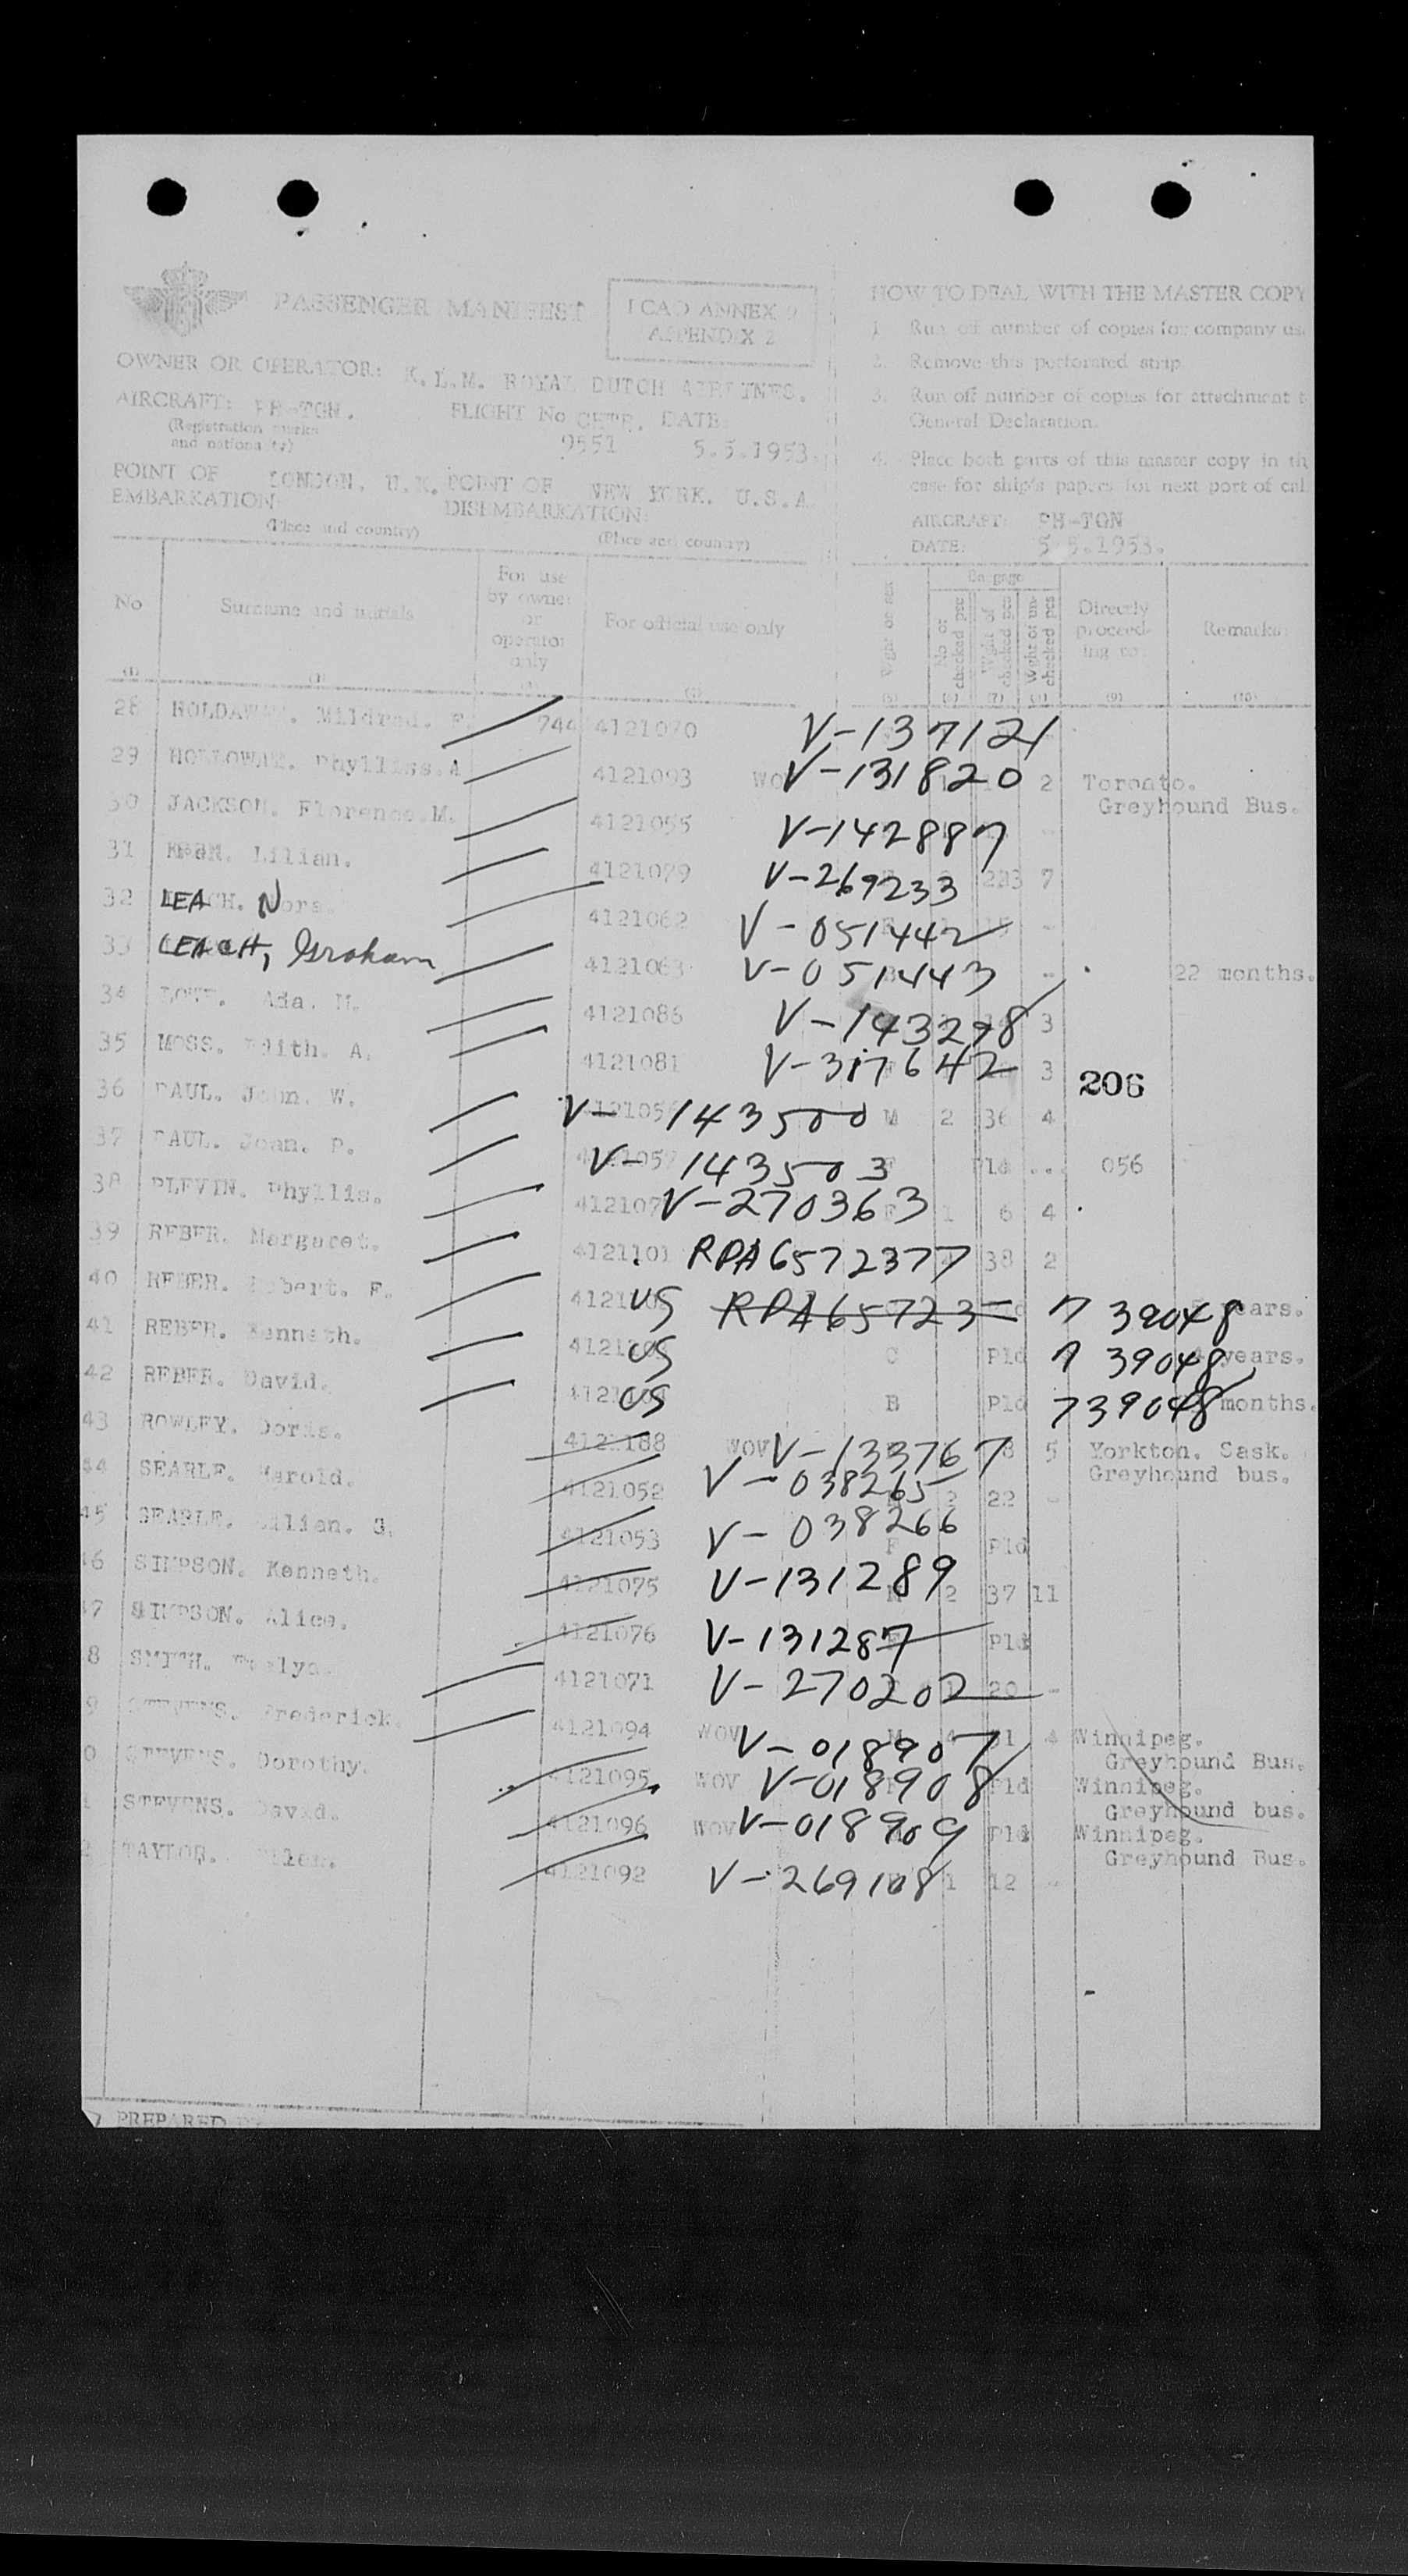 PASSENGER MANIFEST
ICAO ANNEX 9
APPENDIX 2
HOW TO DEAL WITH THE MASTER COPY
1. Run off number of copies for company us
2. Remove this perforated strip
3. Run off number of copies for attachment t
General Declaration.
4. Place both parts of this master copy in th
case for ship's papers for next port of cal
AIRCRAFT: PH-TGN
DATE: 5.5.1953.
OWNER OR OPERATOR: K.L.M. ROYAL DUTCH AIRLINES.
AIRCRAFT: PH-TGN. FLIGHT No CHTR. DATE:
(Registration marks
and nationality) 9551 5.5.1953.
POINT OF EMBARKATION: LONDON. U.K. POINT OF DISEMBARKATION: NEW YORK. U.S.A
(Place and country) (Place and country)
No Surname and initials For use by owner or operator only For official use only Baggage No of checked pcs Wght of checked pcs Wght of un-checked pcs Directly proceeding to Remarks
28 Mildred. 744 4121070 V-137121
29 Phylliss.A 4121093 V-131820 2 Toronto.
Greyhound Bus.
30 JACKSON. Florence.M. 4121055 V-142887 -
31 Lilian. 4121079 V-269233 7
32 LEACH. Nora. 4121062 V-051442 -
33 LEACH, Graham 4121063 V-051443 - 22 months.
34 Ada. 4121086 V-143298 3
35 MOSS. Edith. A. 4121081 V-317642 3
206
36 PAUL. W. V-143500 M 2 36 4
37 PAUL. Joan. P. V-143503 Pld ... 056
38 PLEVIN. Phyllis. V-270363 1 6 4
39 REBER. Margaret. 4121101 RPA6572377 38 2
40 REBER. Robert. F. US RPA65723 7 39048 years.
41 REBER. Kenneth. US C Pld 7 39048 years.
42 REBER. David. US B Pld 739048 months.
43 ROWLEY. Doris. 4121188 WOV V-133767 8 5 Yorkton. Sask.
Greyhound bus.
44 SEARLE. Harold. 4121052 V-038265 2 22 -
45 SEARLE. Lilian. G. 4121053 V-038266 F Pld
46 SIMPSON. Kenneth. 4121075 V-131289 M 2 37 11
47 SIMPSON. Alice. 4121076 V-131287 Pld
8 SMITH. Evelyn. 4121071 V-270202 1 20 -
9 STEVENS. Frederick. 4121094 WOV V-018907 M 4 4 Winnipeg.
Greyhound Bus.
0 STEVENS. Dorothy. 4121095 WOV V-018908 Pld Winnipeg.
Greyhound bus.
STEVENS. David. 4121096 WOV V-018909 Pld Winnipeg.
Greyhound Bus.
TAYLOR. 4121092 V-269108 1 12 -
PREPARED